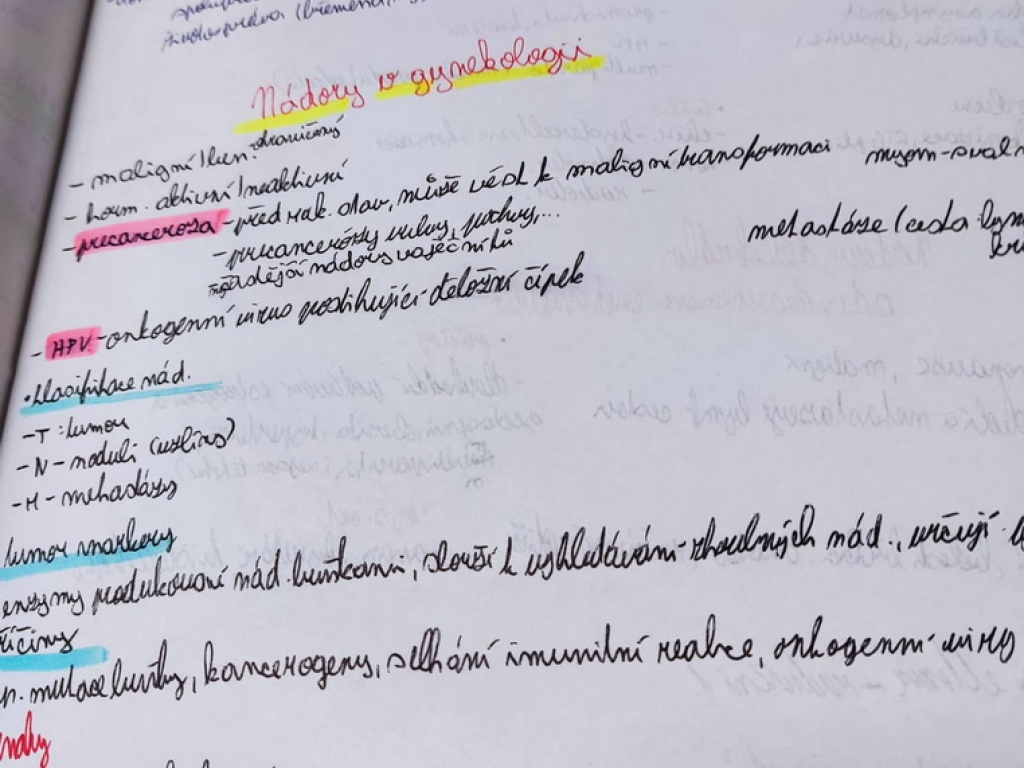 životospráva (břemena),
Nádory v gynekologii
- maligní/ben. hraničný
- horm. aktivní/neaktivní
- precanceroza - před rak. stav, může vést k maligní transformaci
myom - sval
- precancerózy vulvy, pochvy,...
metastáze (cesta lym
častější nádory vaječníků
- HPV - onkogenní virus postihující děložní čípek
• klasifikace nád.
- T: tumor
- N - noduli (uzliny)
- M - metastázy
tumor markery
enzymy produkované nád. buňkami, slouží k vyhledávání zhoubných nád., určují
říčiny
mutace buňky, kancerogeny, selhání imunitní reakce, onkogenní viry